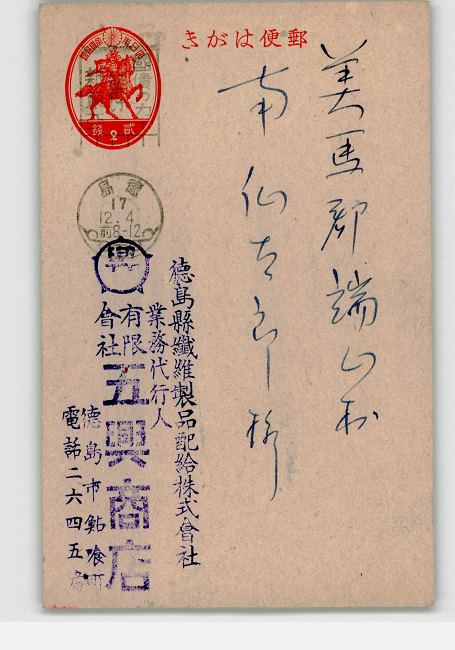 郵便はがき
美馬郡端山村
南仙太郎様
貳銭
2
徳島
17
12.4
前8-12
興
徳島縣纖維製品配給株式會社
業務代行人
有限會社
五興商店
徳島市鮎喰町
電話二六四五番